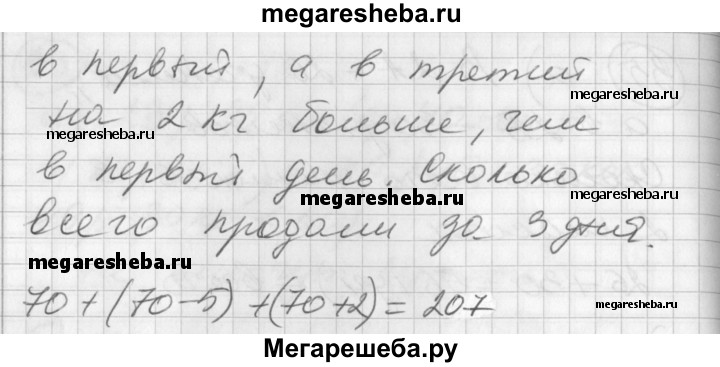 megaresheba.ru
в первый, а в третий
megaresheba.ru
на 2 кг больше, чем
megaresheba.ru
в первый день. Сколько
megaresheba.ru
всего продали за 3 дня.
megaresheba.ru
70+(70-5)+(70+2)=207
megaresheba.ru
Мегарешеба.ру